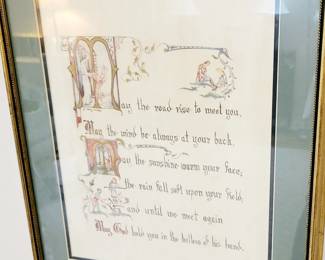 May the road rise to meet you,
May the wind be always at your back.
May the sunshine warm your face;
the rain fall soft upon your field,
and until we meet again
May God hold you in the hollow of his hand.